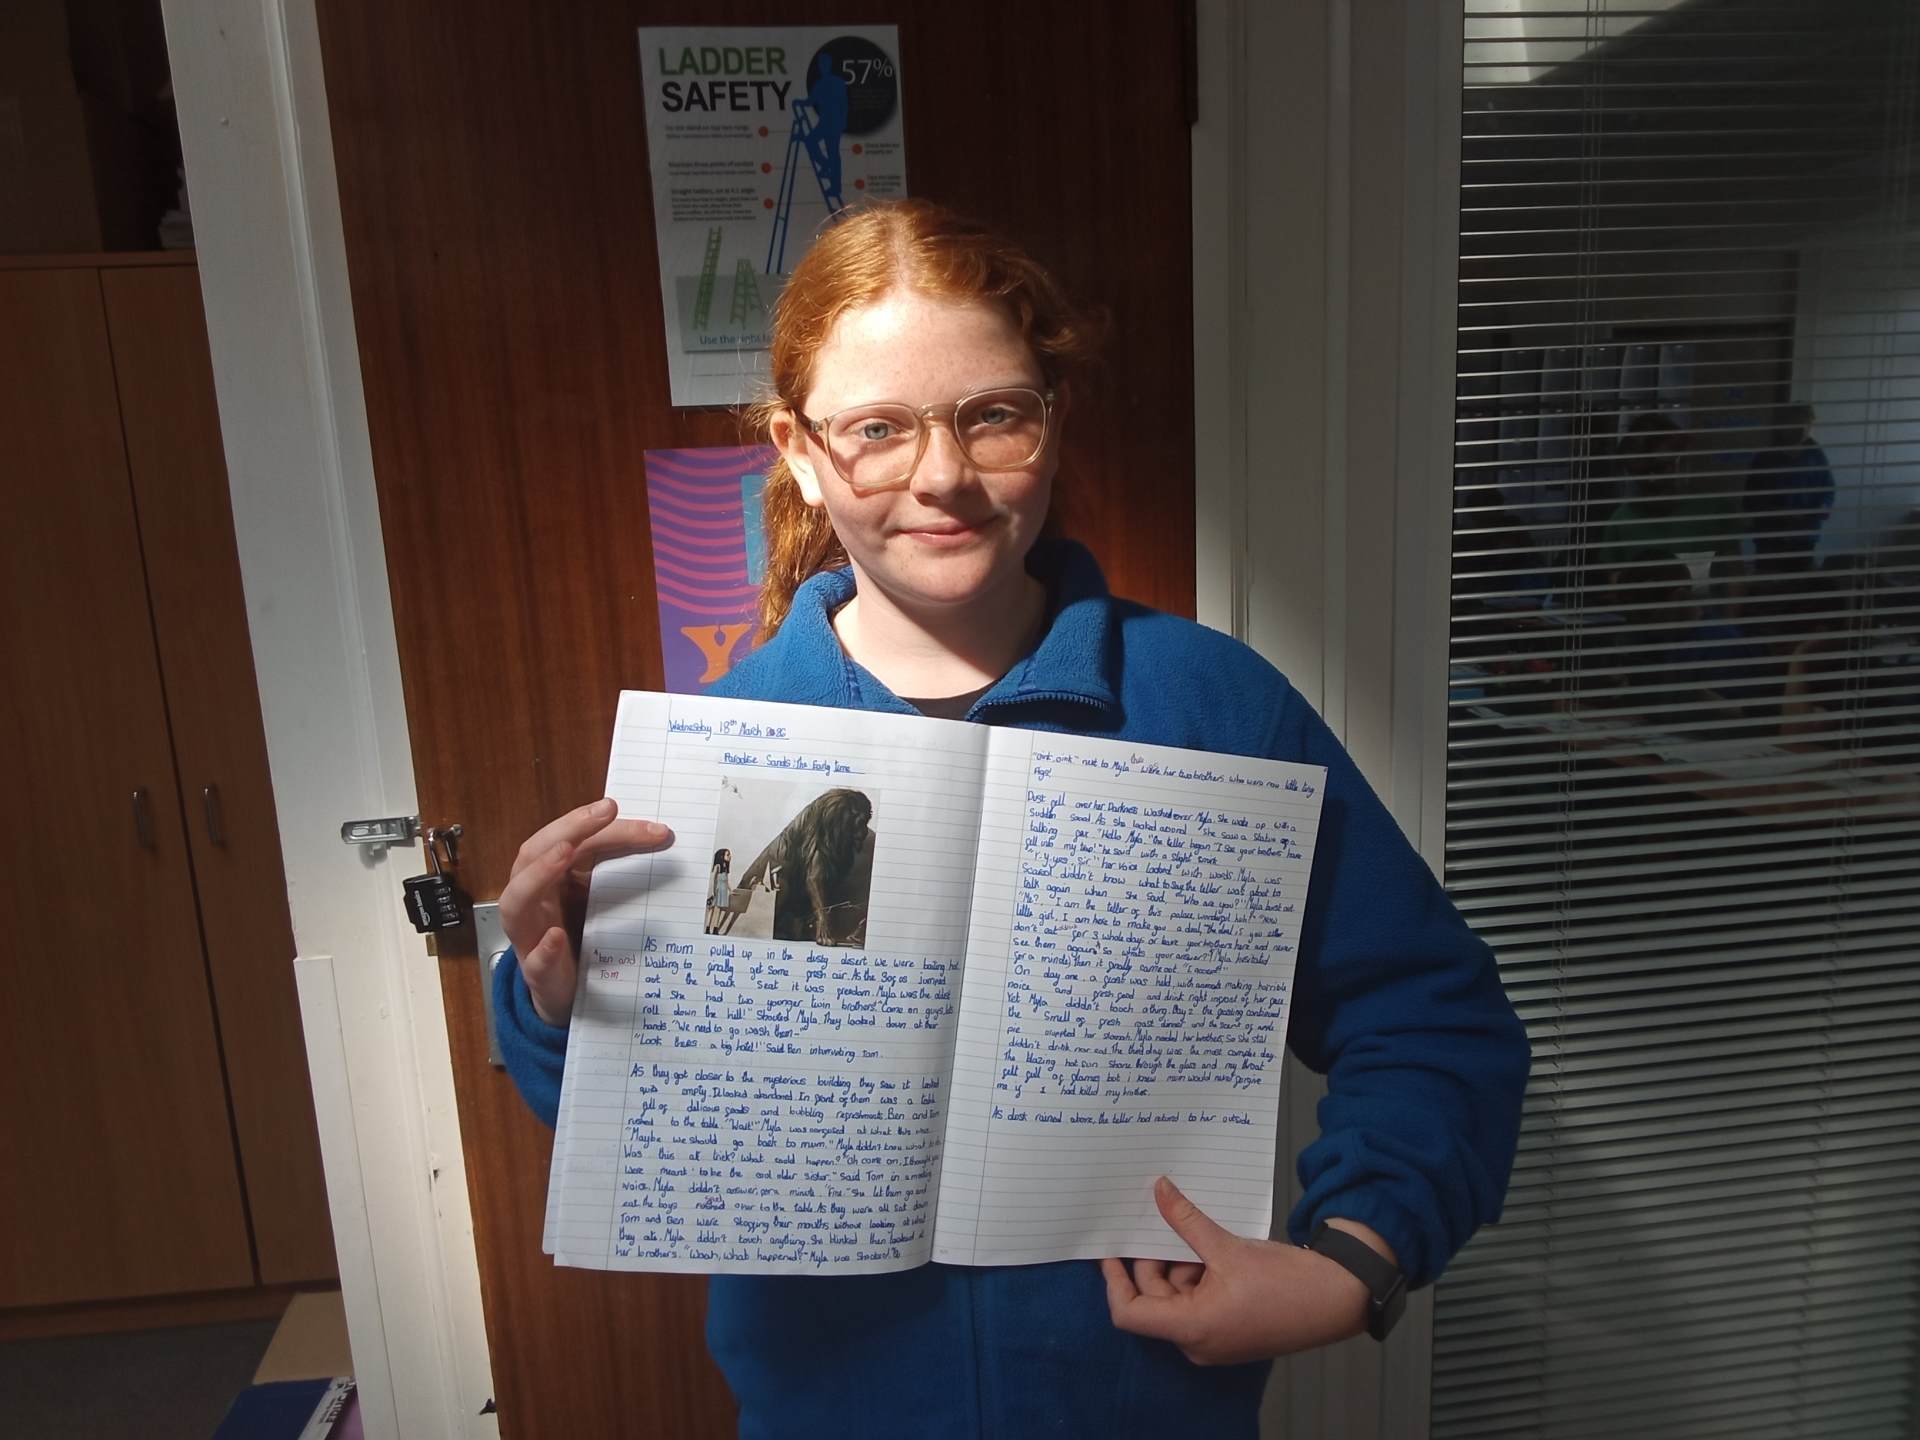 LADDER
SAFETY
57%
Straight ladders, set at 4:1 angle
Use the right
Y
Wednesday 18th March 2026
Paradise Sands: the Early time
ben and
Tom
As mum pulled up in the dusty desert we were boiling hot
Waiting to finally get some fresh air. As the 3 of us jumped
out the back seat it was freedom. Myla was the oldest
and she had two younger twin brothers. "Come on guys, lets
roll down the hill!" Shouted Myla. They looked down at their
hands. "We need to go wash them-"
"Look theres a big hotel!" Said Ben interrupting Tom.
As they got closer to the mysterious building they saw it looked
quite empty. It looked abandoned. In front of them was a table
full of delicous foods and bubbling refreshments. Ben and Tom
rushed to the table. "Wait!" Myla was confused at what this was.
"Maybe we should go back to mum." Myla diddn't know what to do.
Was this all trick? What could happen? "Oh come on, I thought you
were meant to be the cool older sister." Said Tom in a mocking
voice. Myla diddn't answer for a minute. "Fine." She let them go and
eat. the boys rushed over to the table. As they were all sat down
Tom and Ben were stogging their mouths without looking at what
they ate. Myla diddn't touch anything. She blinked then looked at
her brothers. "Woah, what happened?" Myla was shocked.
"oint, oint" next to Myla were her two brothers who were now little tiny
Pigs!
Dust fell over her. Darkness washed over Myla. She woke up with a
sudden sound. As she looked around she saw a statue of a
talking fox. "Hello Myla." the teller began "I see your brothers have
fell into my trap!" he said with a slight smirk.
"Y-y-yes, sir." her voice lacked with words. Myla was
scared diddn't know what to say. the teller was about to
talk again when she said, "Who are you?" Myla burst out
"Me? I am the teller of this palace, wonderful huh?" "Now
little girl, I am here to make you a deal," the deal is you
don't eat for 3 whole days or leave your brothers here and never
see them again. So whats your answer?" Myla hesitated
for a minute, then it finally came out "I accept!"
On day one, a feast was held, with animals making horrible
noice and fresh food and drink right infront of her face.
Yet Myla diddn't touch a thing. Day 2 the feasting continued.
the smell of fresh roast dinner and the scent of apple
pie crippled her stomah. Myla needed her brothers, so she still
diddn't drink nor eat. The third day was the most complex day.
The blazing hot sun shone through the glass and my throat
felt full of flames but i knew mum would never forgive
me if I had killed my brother.
As dusk rained above, the teller had retured to her outside.